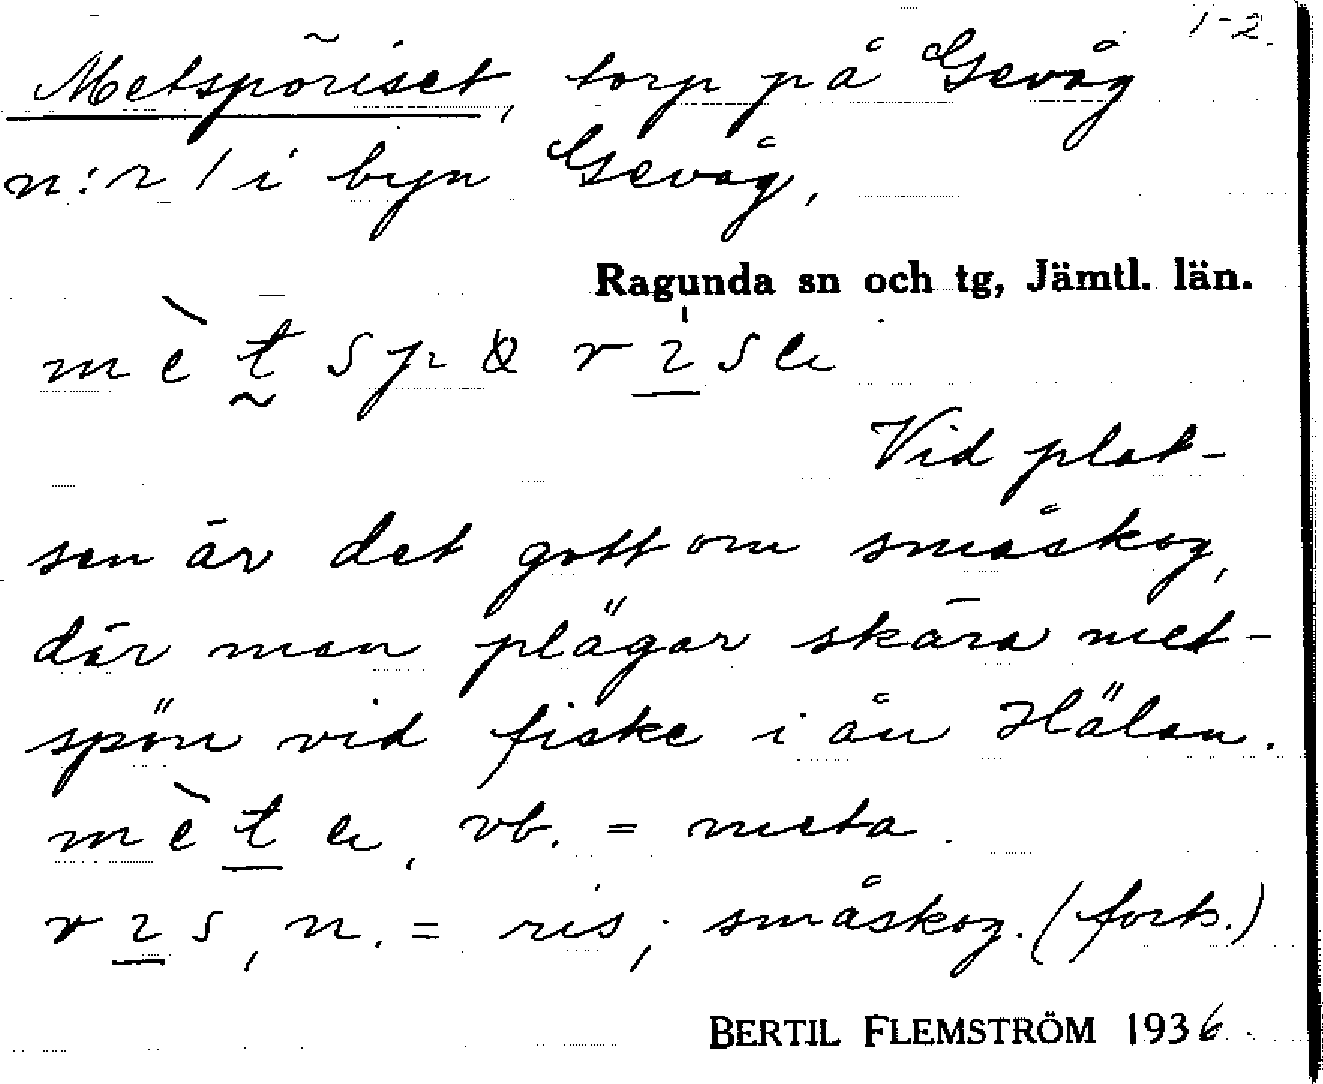 1-2.
Metspöriset, torp på Gevåg
n:r 1 i byn Gevåg,
Ragunda sn och tg, Jämtl. län.
Vid plat-
sen är det gott om småskog,
där man plägar skära met-
spön vid fiske i ån Hälan.
vb. = meta.
n. = ris; småskog. (forts.)
BERTIL FLEMSTRÖM 1936.